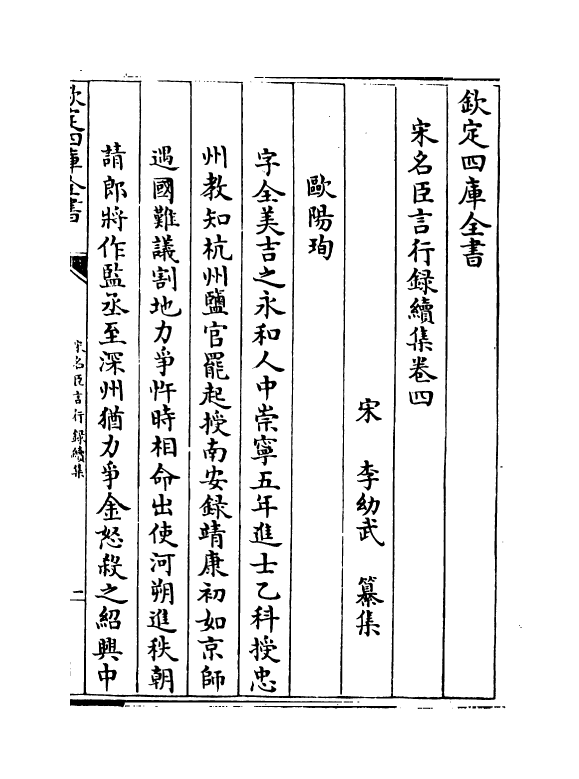 欽定四庫全書
宋名臣言行録續集卷四
宋 李幼武 纂集
歐陽珣
字全美吉之永和人中崇寧五年進士乙科授忠
州教知杭州鹽官罷起授南安録靖康初如京師
遇國難議割地力爭忤時相命出使河朔進秩朝
請郎將作監丞至深州猶力爭金怒殺之紹興中
欽定四庫全書
宋名臣言行録續集
二